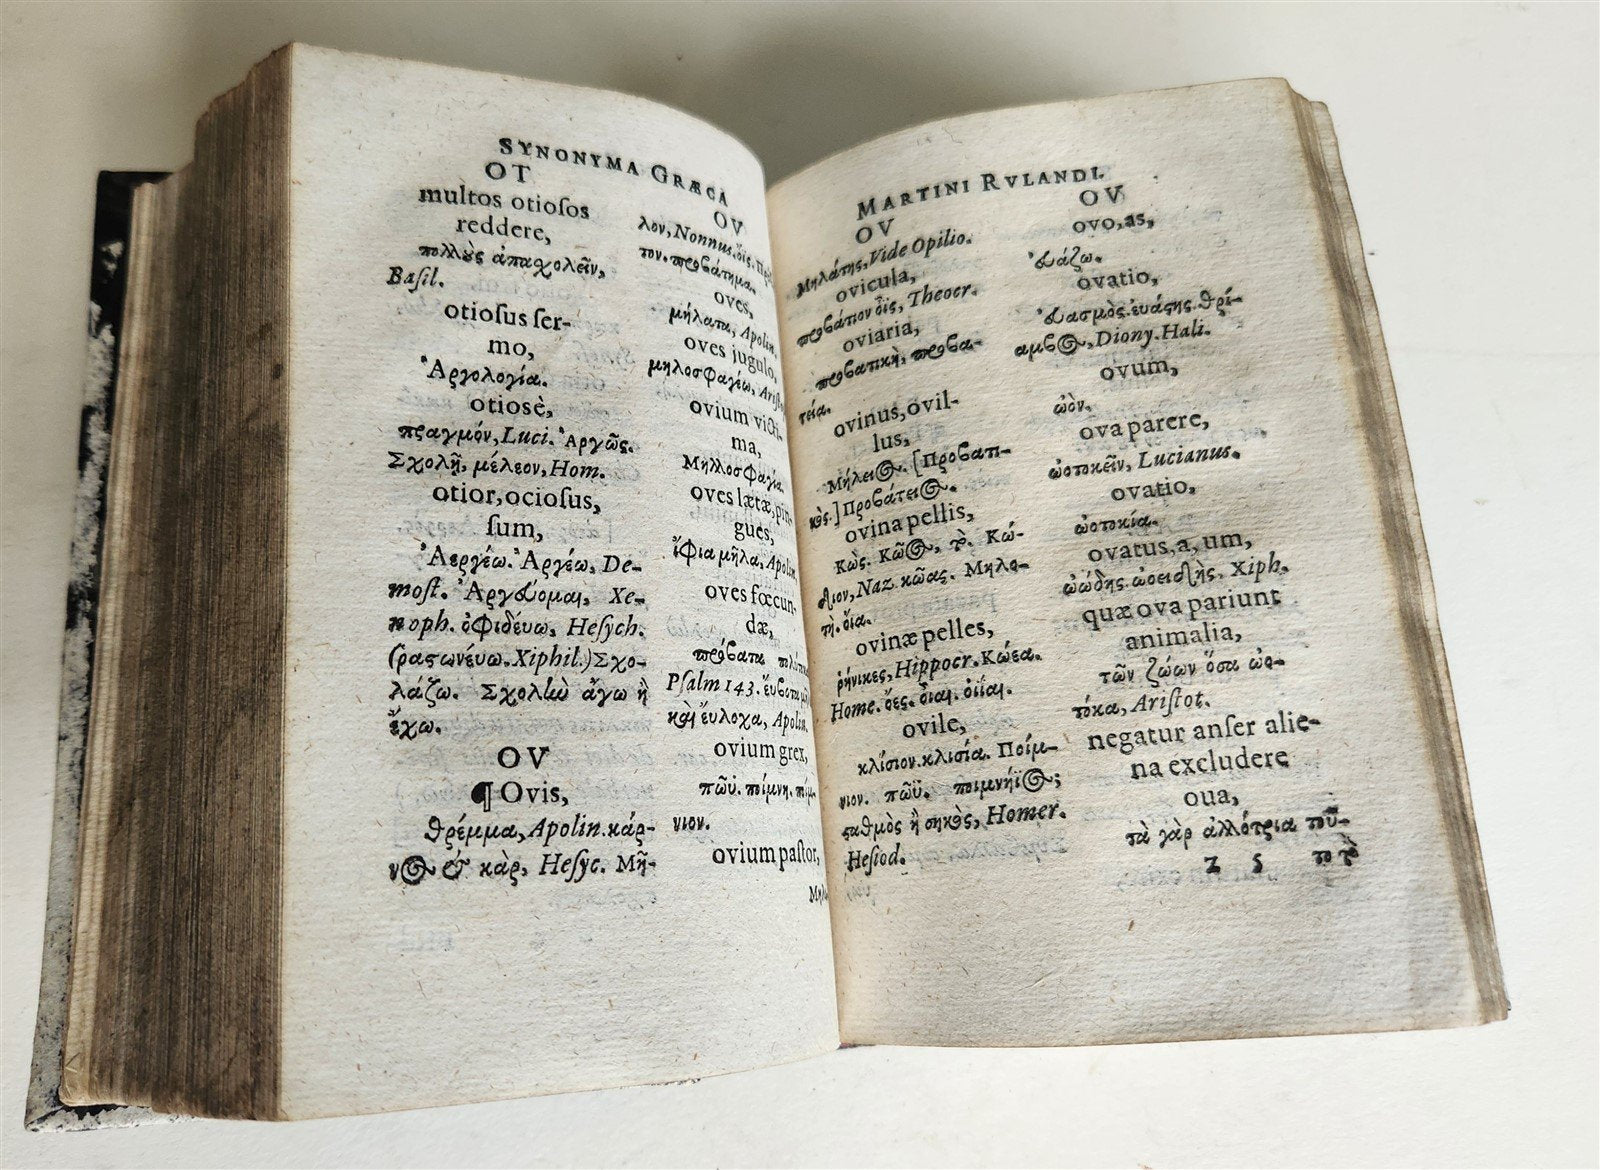 SYNONYMA GRÆCA
OT
multos otioſos
reddere,
πολλοὺς ἀπαχολεῖν,
Baſil.
otioſus ſer-
mo,
Ἀργολογία.
otiosè,
πραγμόν, Luci. Ἀργῶς.
Σχολῇ, μέλεον, Hom.
otior, ocioſus,
ſum,
Ἀεργέω. Ἀργέω, De-
moſt. Ἀργεύομαι, Xe-
noph. ὀφιδεύω, Heſych.
(ῥαστωνεύω. Xiphil.) Σχο-
λάζω. Σχολὴν ἄγω ἢ
ἔχω.
OV
¶ Ovis,
θρέμμα, Apolin. κάρ-
νος καὶ κὰρ, Heſyc. Μῆ-
OV
λον, Nonnus. ὄϊς.
τον. προβάτημα.
oves,
μήλατα, Apolin.
oves jugulo,
μηλοσφαγέω, Ariſt.
ovium victi-
ma,
Μηλλοσφαγία.
oves lætæ, pin-
gues,
ἴφια μῆλα, Apolin.
oves fœcun-
dæ,
πρόβατα
Pſalm 143. εὔβοτα
καὶ εὔλοχα, Apolin.
ovium grex,
πῶϋ. ποίμνη. ποίμ-
νιον.
ovium paſtor,
Μηλα
MARTINI RVLANDI.
OV
Μηλάτης, Vide Opilio.
ovicula,
προβάτιον ὄϊς, Theocr.
oviaria,
προβατικὴ, προβα-
τεία.
ovinus, ovil-
lus,
Μήλειος. [Προβατι-
κός.] Προβάτειος.
ovina pellis,
Κὼς. Κῶος, τὸ. Κώ-
διον, Naz. κῶας. Μηλο-
τὴ. ὄια.
ovinæ pelles,
ῥήνικες, Hippocr. Κώεα.
Home. ὄες. διαι. οἴϊαι.
ovile,
κλίσιον. κλισία. Ποίμ-
νιον. πῶϋ. ποιμνήϊος;
σταθμὸς ἢ σηκὸς, Homer.
Heſiod.
OV
ovo, as,
εὐάζω.
ovatio,
εὐασμὸς. εὐάσης. θρί-
αμβος, Diony. Hali.
ovum,
ὠὸν.
ova parere,
ὠοτοκεῖν, Lucianus.
ovatio,
ὠοτοκία.
ovatus, a, um,
ὠώδης. ὠοειδὴς. Xiph.
quæ ova pariunt
animalia,
τῶν ζώων ὅσα ὠο-
τόκα, Ariſtot.
negatur anſer alie-
na excludere
oua,
τὰ γὰρ ἀλλότρια τοῦ-
Z 5 το τὸ